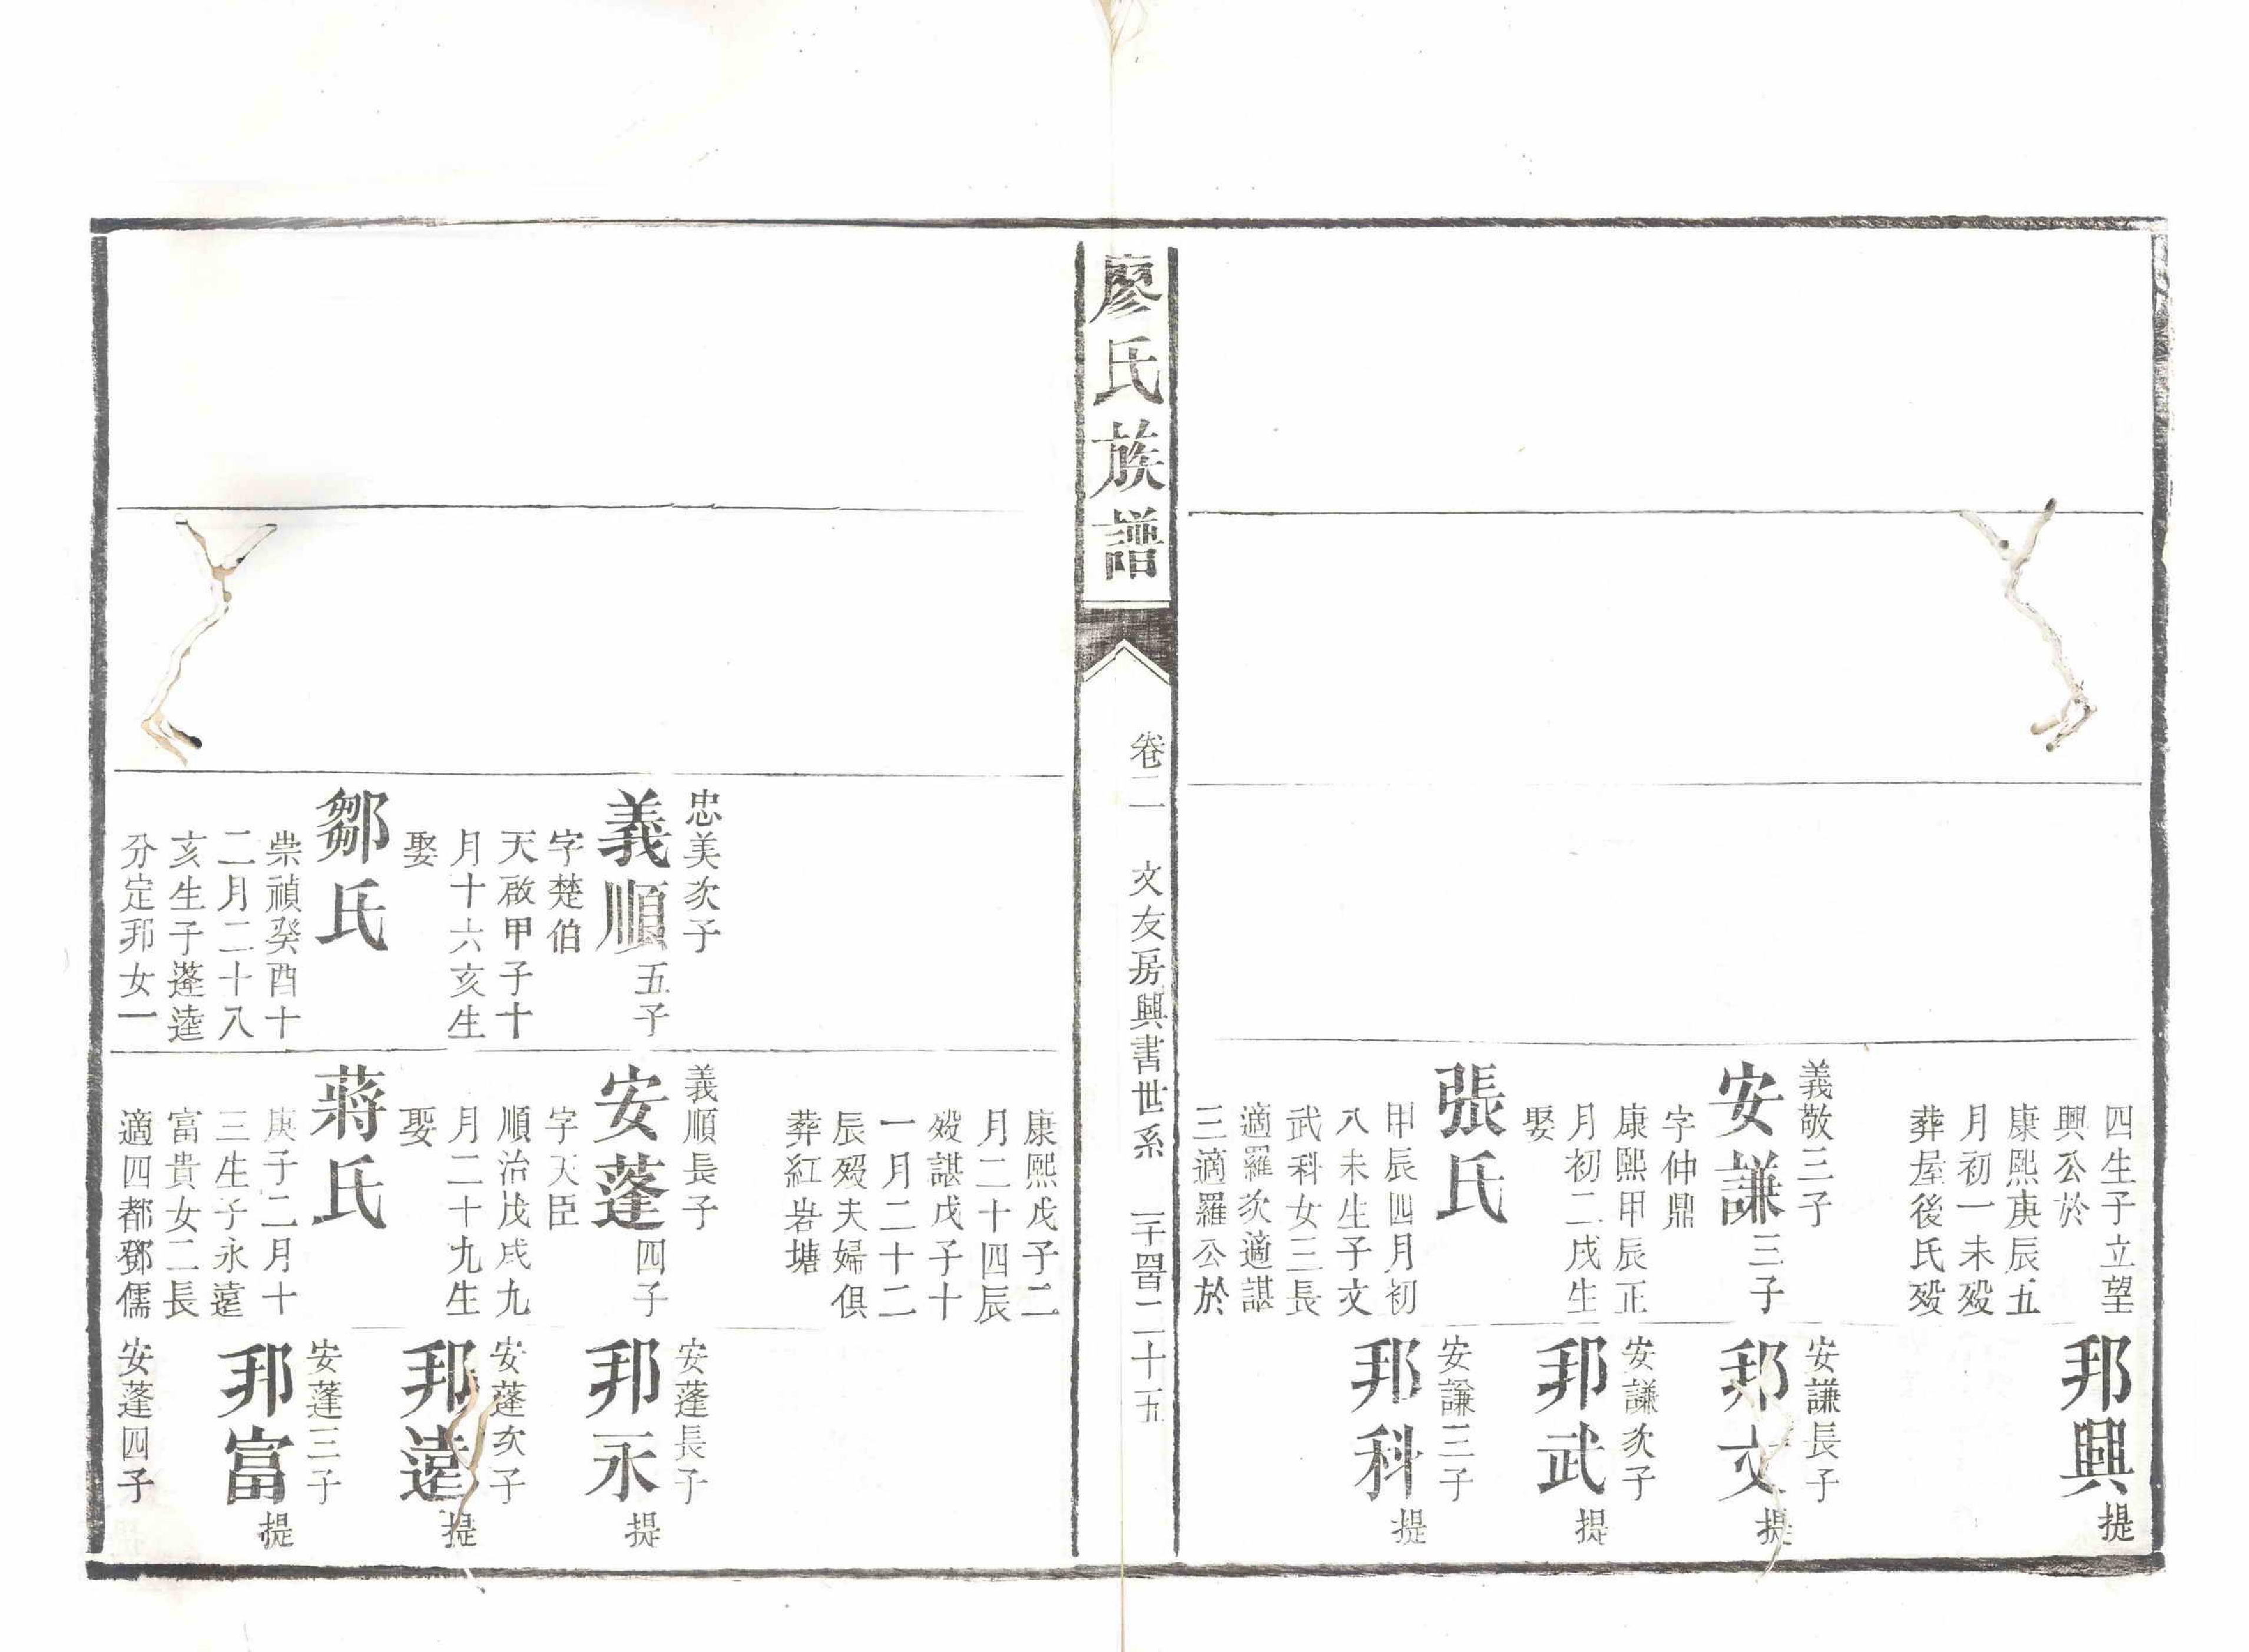 四生子立望
興公於
康熙庚辰五
月初一未殁
葬屋後氏殁
義敬三子
安謙三子
字仲鼎
康熙甲辰正
月初二戌生
娶
張氏
甲辰四月初
八未生子文
武科女三長
適羅次適諶
三適羅公於
邦興提
安謙長子
邦文提
安謙次子
邦武提
安謙三子
邦科提
廖氏族譜
卷二
文友房興書世系
一千四百二十五
忠美次子
義順五子
字楚伯
天啟甲子十
月十六亥生
娶
鄒氏
崇禎癸酉十
二月二十八
亥生子蓬逵
分定邦女一
康熙戊子二
月二十四辰
殁諶戊子十
一月二十二
辰殁夫婦俱
葬紅岩塘
義順長子
安蓬四子
字天臣
順治戊戌九
月二十九生
娶
蔣氏
庚子二月十
三生子永遠
富貴女二長
適四都鄧儒
安蓬長子
邦永提
安蓬次子
邦遠提
安蓬三子
邦富提
安蓬四子